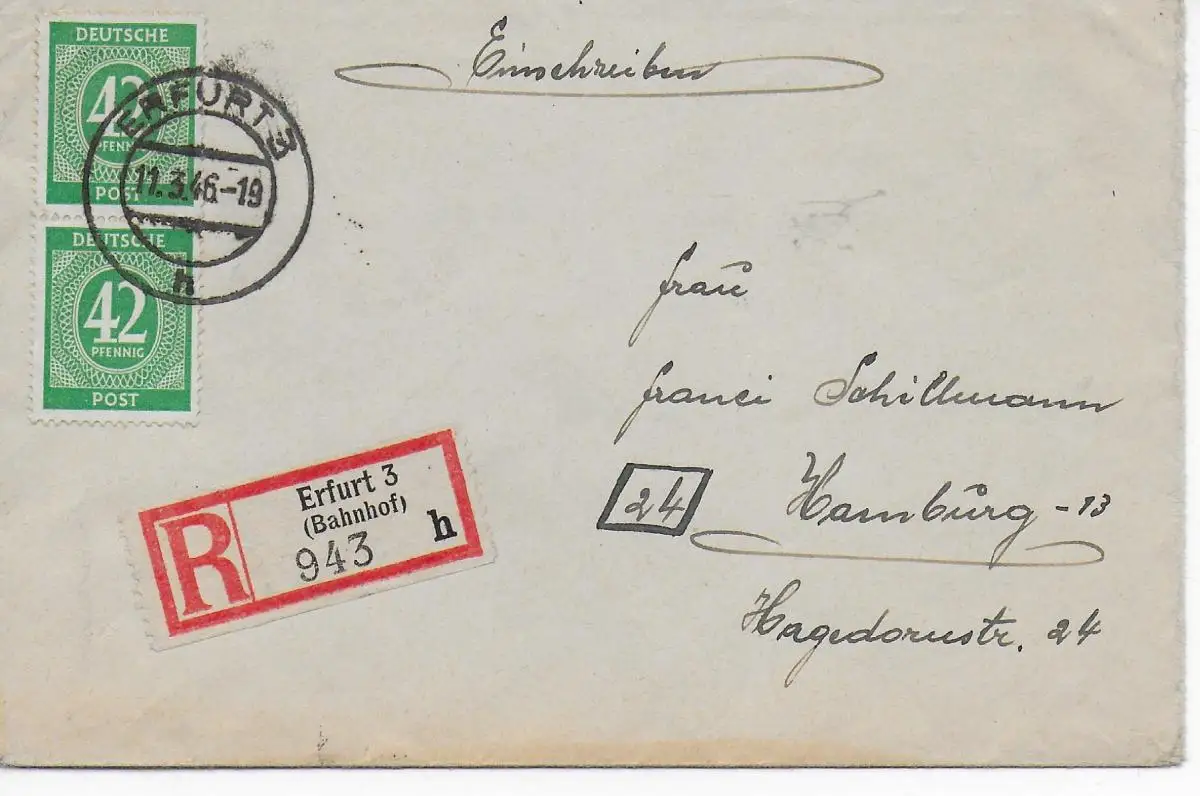 DEUTSCHE
42
PFENNIG
POST
ERFURT 3
11.3.46.-19
h
DEUTSCHE
42
PFENNIG
POST
Einschreiben
Frau
Franci Schillmann
24 Hamburg - 13
Hagedornstr. 24
R
Erfurt 3
(Bahnhof)
943 h